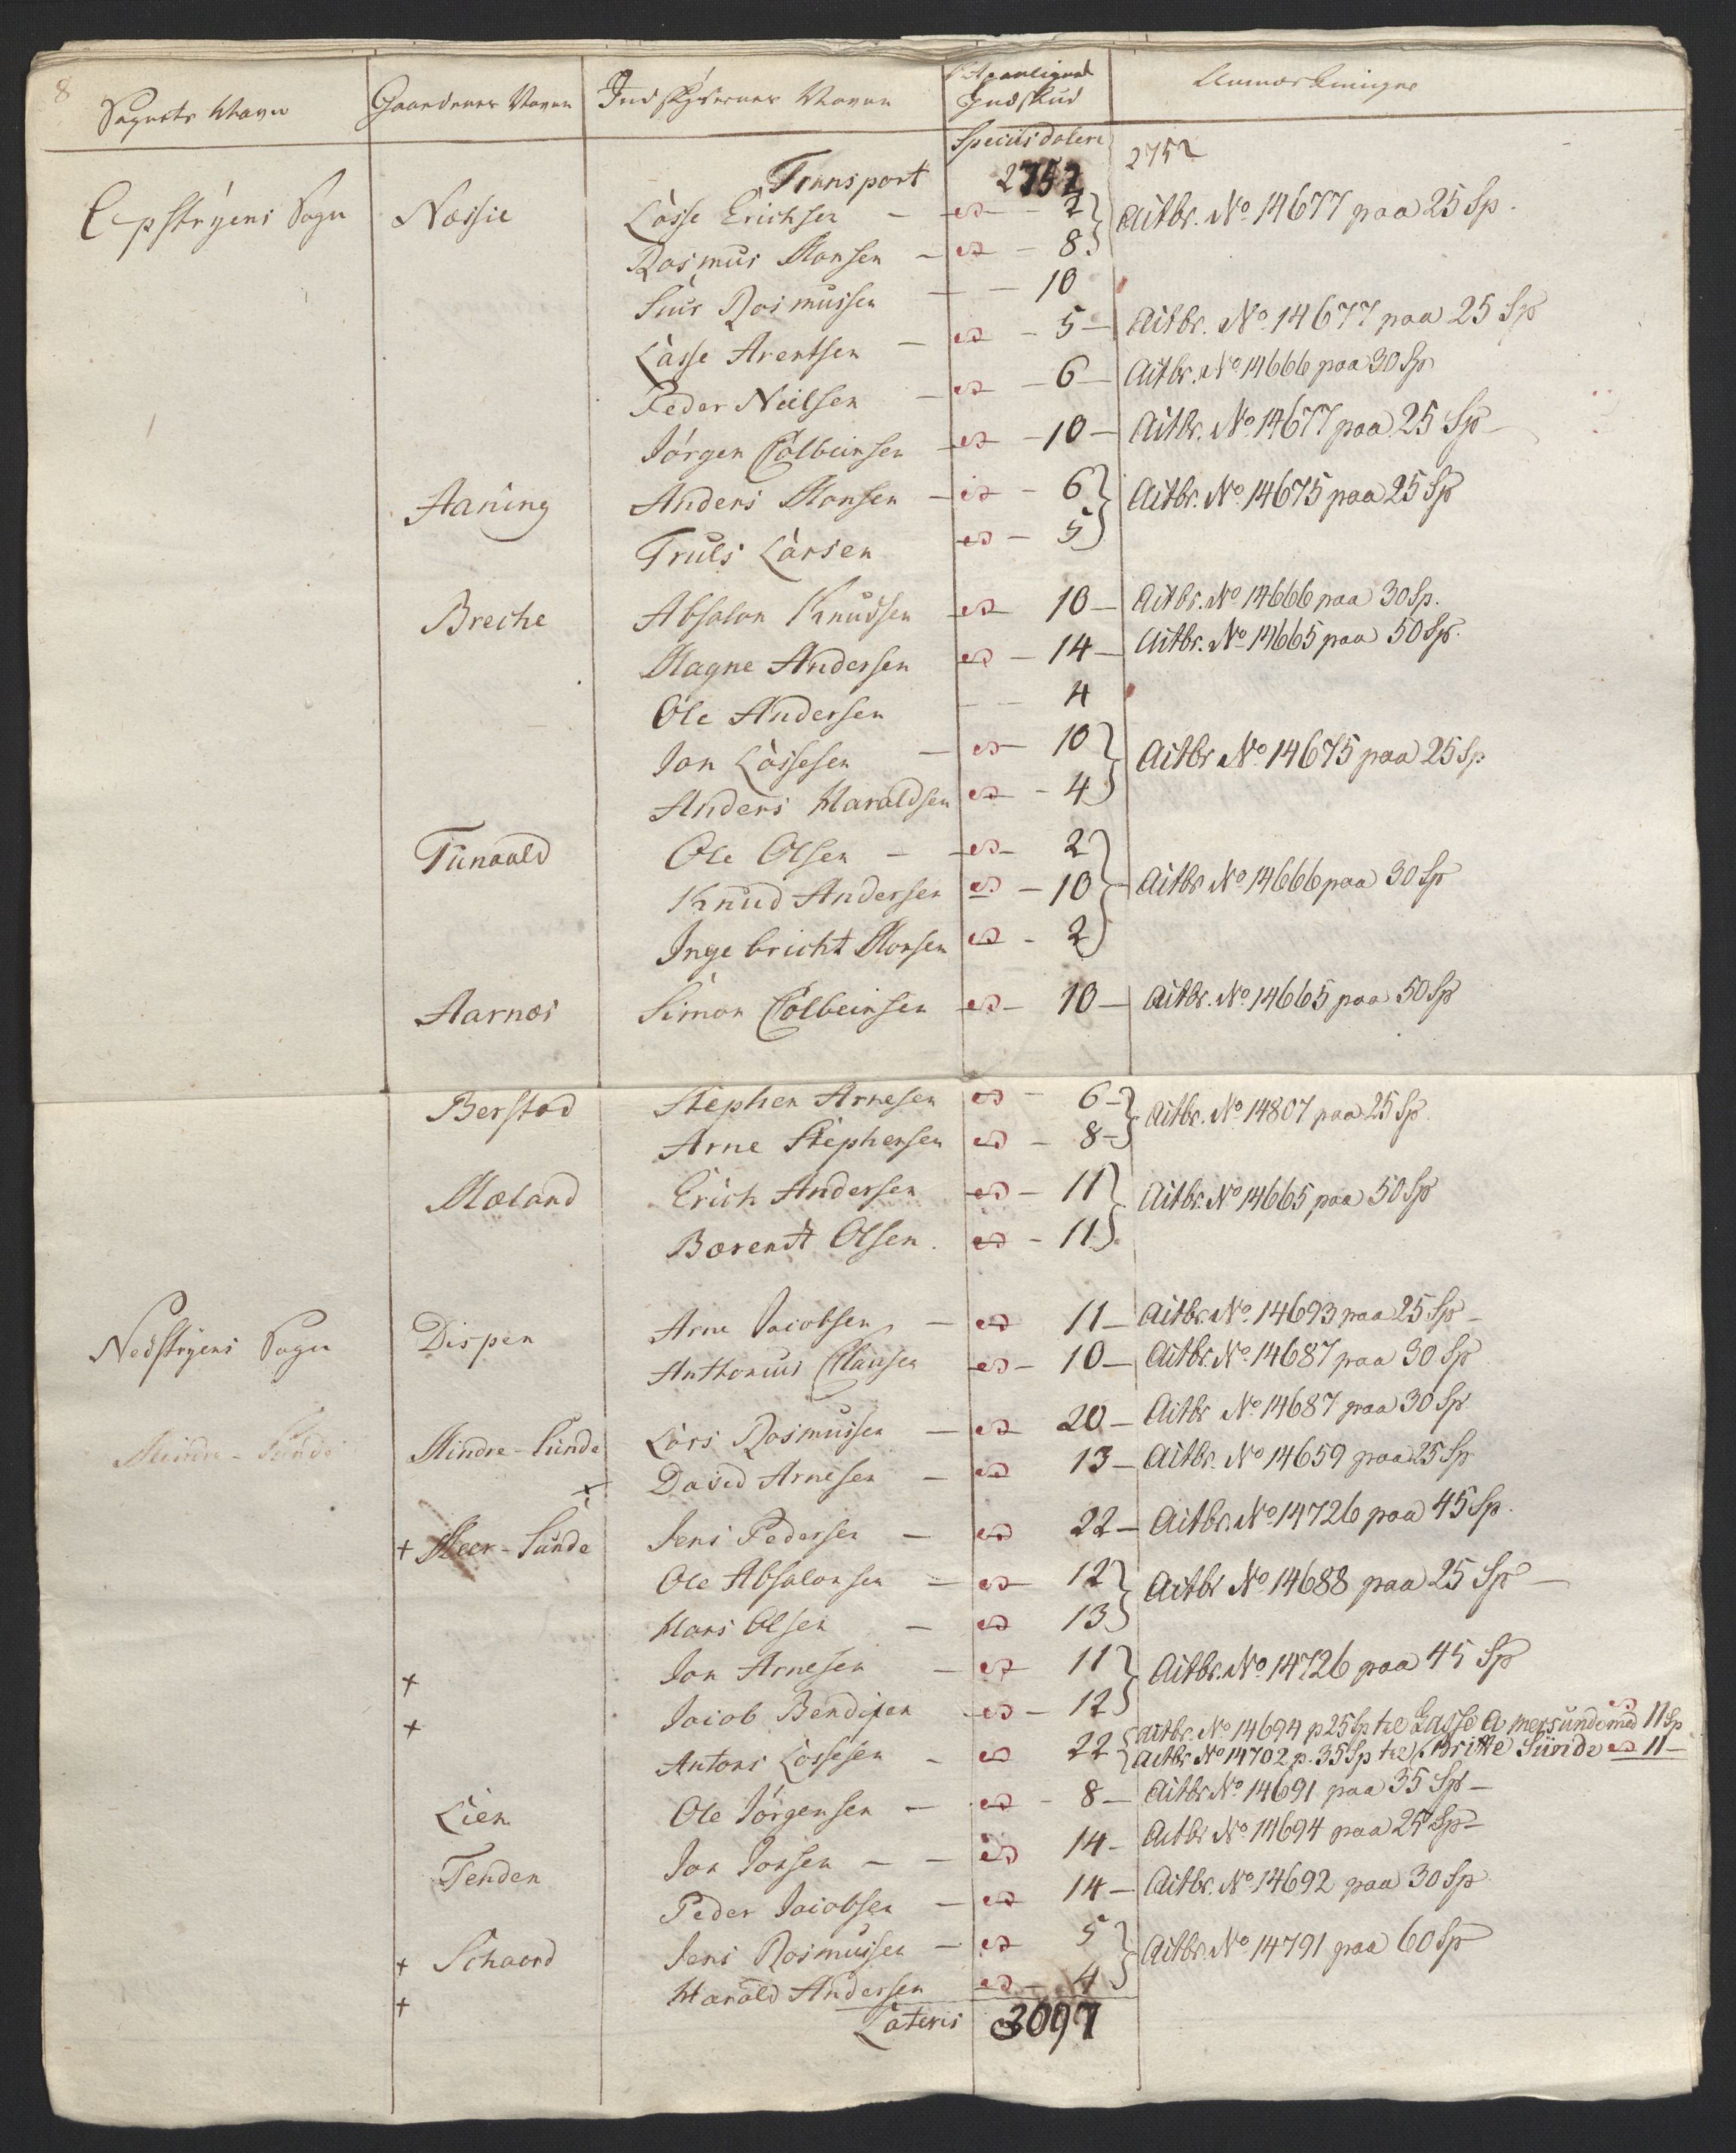 8
Sognets Navn | Gaardenes Navne | Indskydernes Navne | Indskud | Anmærkninger
Species daler
Transport 2752 | 2752
Opstryens Sogn | Næssie | Lasse Erichsen - 2 | Actbr. No 14677 paa 25 Sp.
Rasmus Monsen - 8
Siur Rasmussen - 10
Lasse Arentsen - 5 - Actbr. No 14677 paa 25 Sp
Peder Neilsen - 6 - Actbr. No 14666 paa 30 Sp
Jørgen Colbeinsen - 10 - Actbr. No 14677 paa 25 Sp
Aaning | Anders Monsen - 6 | Actbr. No 14675 paa 25 Sp
Truls Larsen - 5
Breche | Absalon Knudsen - 10 - Actbr. No 14666 paa 30 Sp.
Magne Andersen - 14 - Actbr. No 14665 paa 50 Sp.
Ole Andersen - 4
Jon Lassesen - 10 | Actbr No 14675 paa 25 Sp
Anders Haraldsen - 4
Tunoald | Ole Olsen - 2
Knud Andersen - 10 - Actbr No 14666 paa 30 Sp
Ingebricht Monsen - 2
Aarnæs | Simon Colbeinsen - 10 - Actbr. No 14665 paa 50 Sp
Berstad | Stephen Arnesen - 6 - Actbr. No 14807 paa 25 Sp
Arne Stephensen - 8 -
Mæland | Erich Andersen - 11 | Actbr. No 14665 paa 50 Sp
Barendt Olsen - 11
Nedstryens Sogn | Dispen | Arne Jacobsen - 11 - Actbr. No 14693 paa 25 Sp -
Anthonius Clausen - 10 - Actbr. No 14687 paa 30 Sp
Mindre-Sunde | Mindre-Sunde | Lars Rasmussen - 20 - Actbr No 14687 paa 30 Sp
+ David Arnesen - 13 - Actbr. No 14659 paa 25 Sp
+ Meer-Sunde | Jens Pedersen - 22 - Actbr. No 14726 paa 45 Sp.
Ole Absalonsen - 12 | Actbr No 14688 paa 25 Sp -
Hans Olsen - 13
+ Jon Arnesen - 11 | Actbr. No 14726 paa 45 Sp
+ Jacob Bendixen - 12
Antons Lassesen - 22 | Actbr. No 14694 p 25 Sp til Lasse A Mersunde med 11 Sp
Actbr No 14702 p. 35 Sp til Britte Sünde 11 -
Lien | Ole Jørgensen - 8 - Actbr No 14691 paa 35 Sp -
Tenden | Jon Jonsen - 14 - Actbr No 14694 paa 25 Sp -
Peder Jacobsen - 14 - Actbr. No 14692 paa 30 Sp
+ Schaard | Jens Rasmussen - 5 | Actbr. No 14791 paa 60 Sp
+ Harald Andersen - 4
Lateris 3097